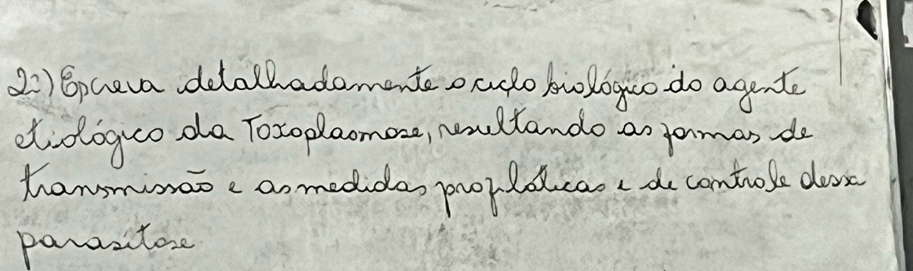 2:) Escreva detalhadamente o ciclo biológico do agente
etiológico da Toxoplasmose, resultando as formas de
transmissão e as medidas profiláticas e de controle dessa
parasitose